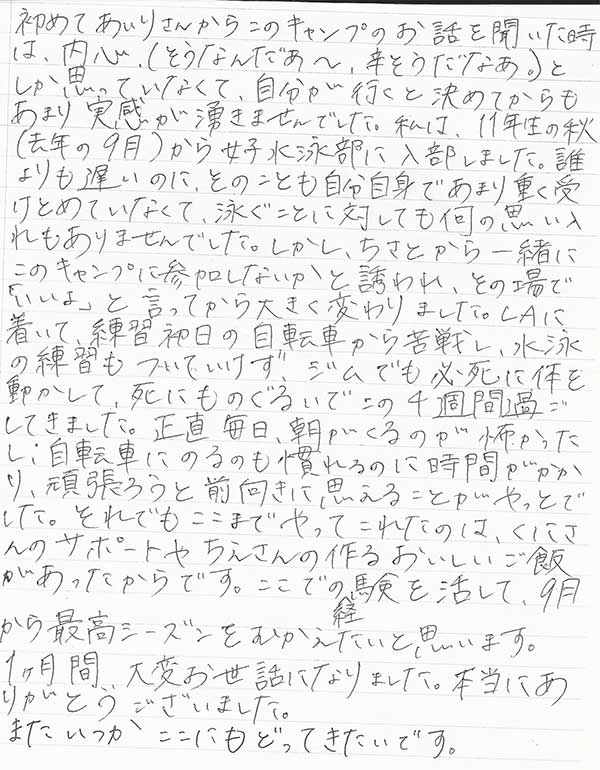 初めてあいりさんからこのキャンプのお話を聞いた時
は、内心、(そうなんだぁ〜、辛そうだなぁ。)と
しか思っていなくて、自分が行くと決めてからも
あまり実感が湧きませんでした。私は、11年生の秋
(去年の9月)から女子水泳部に入部しました。誰
よりも遅いのに、そのことも自分自身であまり重く受
けとめていなくて、泳ぐことに対しても何の思い入
れもありませんでした。しかし、ちさとから一緒に
このキャンプに参加しないかと誘われ、その場で
「いいよ」と言ってから大きく変わりました。LAに
着いて、練習初日の自転車から苦戦し、水泳
の練習もついていけず、ジムでも必死に体を
動かして、死にものぐるいでこの4週間過ご
してきました。正直毎日、朝がくるのが怖かった
し、自転車にのるのも慣れるのに時間がかか
り、頑張ろうと前向きに思えることがやっとで
した。それでもここまでやってこれたのは、くにさ
んのサポートやちえさんの作るおいしいご飯
があったからです。ここでの経験を活して、9月
から最高シーズンをむかえたいと思います。
1ヶ月間、大変お世話になりました。本当にあ
りがとうございました。
またいつかここにもどってきたいです。